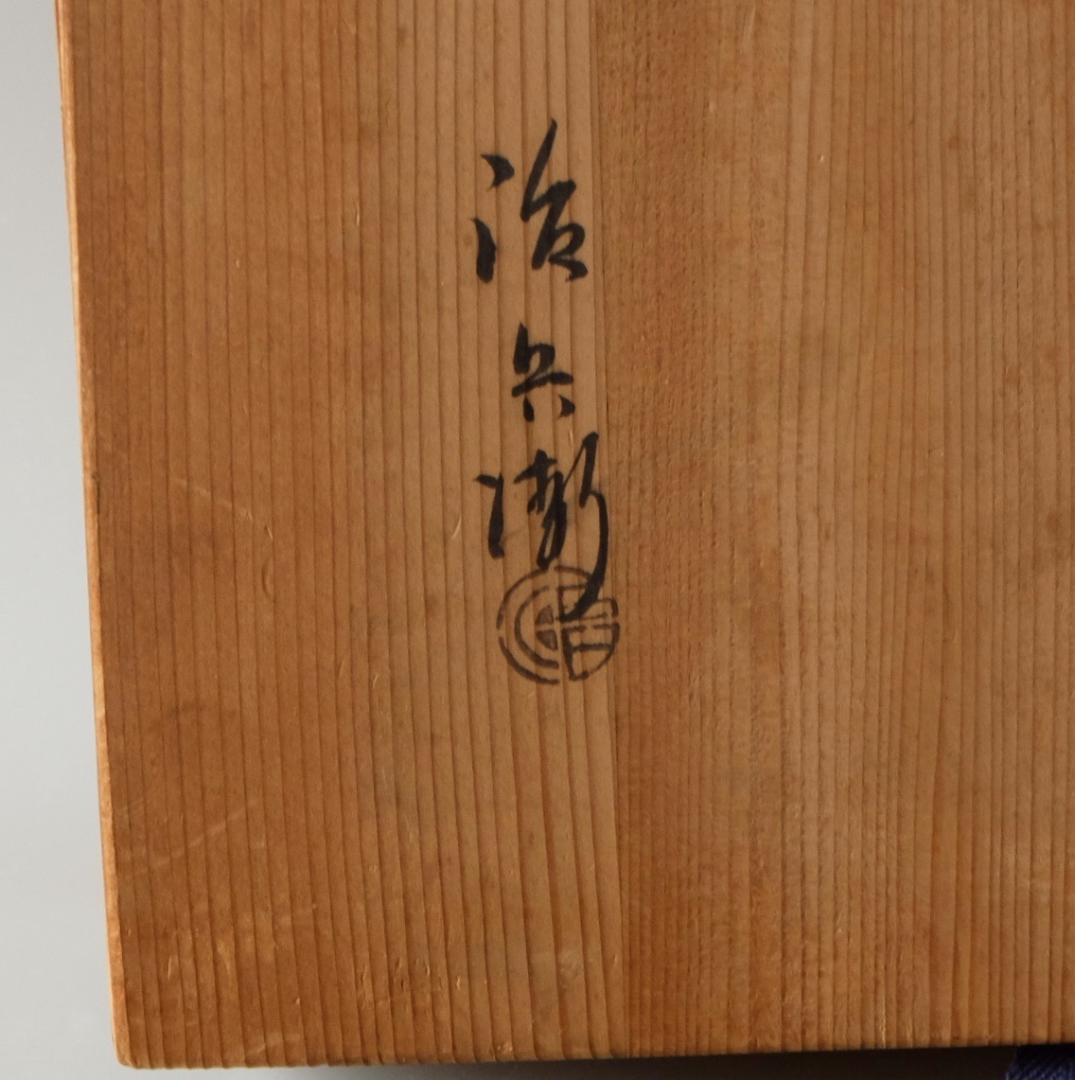 治兵衛